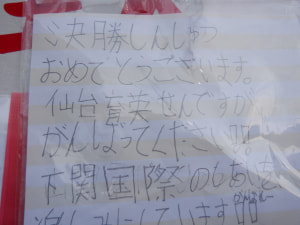 決勝しんしゅつ
おめでとうございます。
仙台育英せんですが
がんばってください!!
下関国際のしあいを
楽しみにしています!!